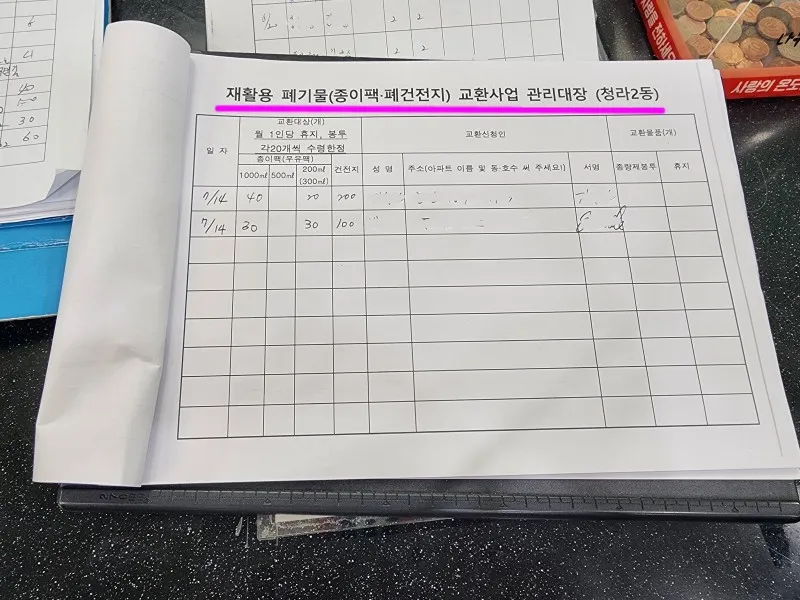 재활용 폐기물(종이팩·폐건전지) 교환사업 관리대장 (청라2동)
일 자
교환대상(개)
월 1인당 휴지, 봉투
각20개씩 수령한정
종이팩(우유팩)
1000㎖
500㎖
200㎖
(300㎖)
건전지
교환신청인
성 명
주소(아파트 이름 및 동·호수 써 주세요!)
서명
교환물품(개)
종량제봉투
휴지
7/14 40 20 200
7/14 30 30 100
사랑의 온도
40
30
60
2 2
2 2